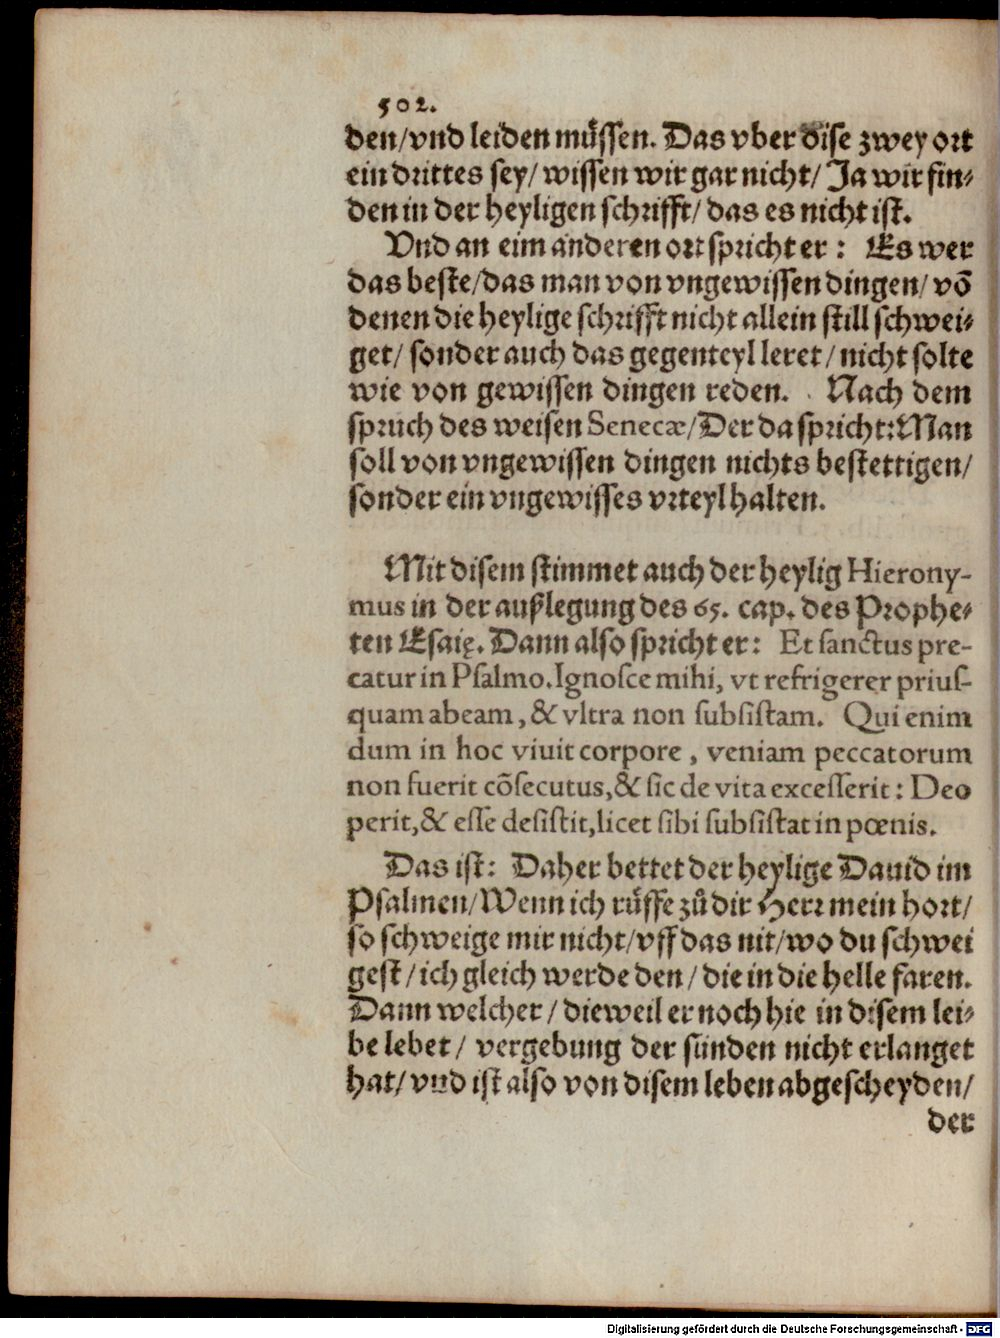 502.
den/vnd leiden müssen. Das vber dise zwey ort
ein drittes sey/ wissen wir gar nicht/ Ja wir fin⸗
den in der heyligen schrifft/ das es nicht ist.
Vnd an eim anderen ort spricht er: Es wer
das beste/das man von vngewissen dingen/ võ
denen die heylige schrifft nicht allein still schwei⸗
get/ sonder auch das gegenteyl leret/ nicht solte
wie von gewissen dingen reden. Nach dem
spruch des weisen Senecæ/Der da spricht: Man
soll von vngewissen dingen nichts bestettigen/
sonder ein vngewisses vrteyl halten.
Mit disem stimmet auch der heylig Hierony-
mus in der außlegung des 65. cap. des Prophe⸗
ten Esaię. Dann also spricht er: Et sanctus pre-
catur in Psalmo. Ignosce mihi, vt refrigerer prius-
quam abeam, & vltra non subsistam. Qui enim
dum in hoc viuit corpore, veniam peccatorum
non fuerit cõsecutus, & sic de vita excesserit: Deo
perit, & esse desistit, licet sibi subsistat in pœnis.
Das ist: Daher bettet der heylige Dauid im
Psalmen/Wenn ich rüffe zů dir Herr mein hort/
so schweige mir nicht/vff das nit/wo du schwei
gest/ich gleich werde den/die in die helle faren.
Dann welcher/ dieweil er noch hie in disem lei⸗
be lebet/ vergebung der sünden nicht erlanget
hat/vnd ist also von disem leben abgescheyden/
der
Digitalisierung gefördert durch die Deutsche Forschungsgemeinschaft - DFG